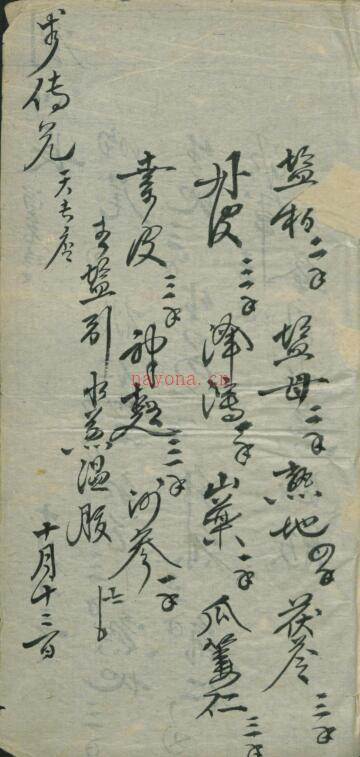 盐柏二钱 盐母二钱 熟地四钱 茯苓三钱
丹皮三钱 泽泻一钱 山药一钱 瓜蒌仁三钱
姜皮三钱 神麯三钱 沙参一钱
盐引 水煎温服
十月十三日
nayona.cn